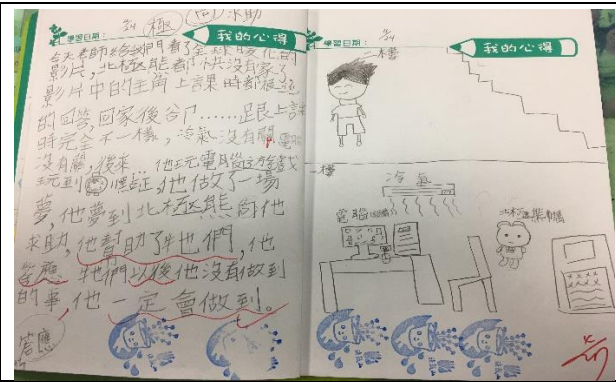 極 向 求助
學習日期： 5/24
我的心得
今天老師給我們看了全球暖化的
影片,北極熊都快沒有家了,
影片中的主角上課時都很認
的回答,回家後 ……跟上課
時完全不一樣,冷氣沒有關,電腦
沒有關,後來,他玩電腦遊戲
玩到 他做了一場
夢,他夢到北極熊向他
求助,他幫助了牠們,他
答應 牠們以後他沒有做到
的事,他一定會做到。
答應
學習日期： 5/24
我的心得
二樓
一樓
冷氣
電腦
北極熊